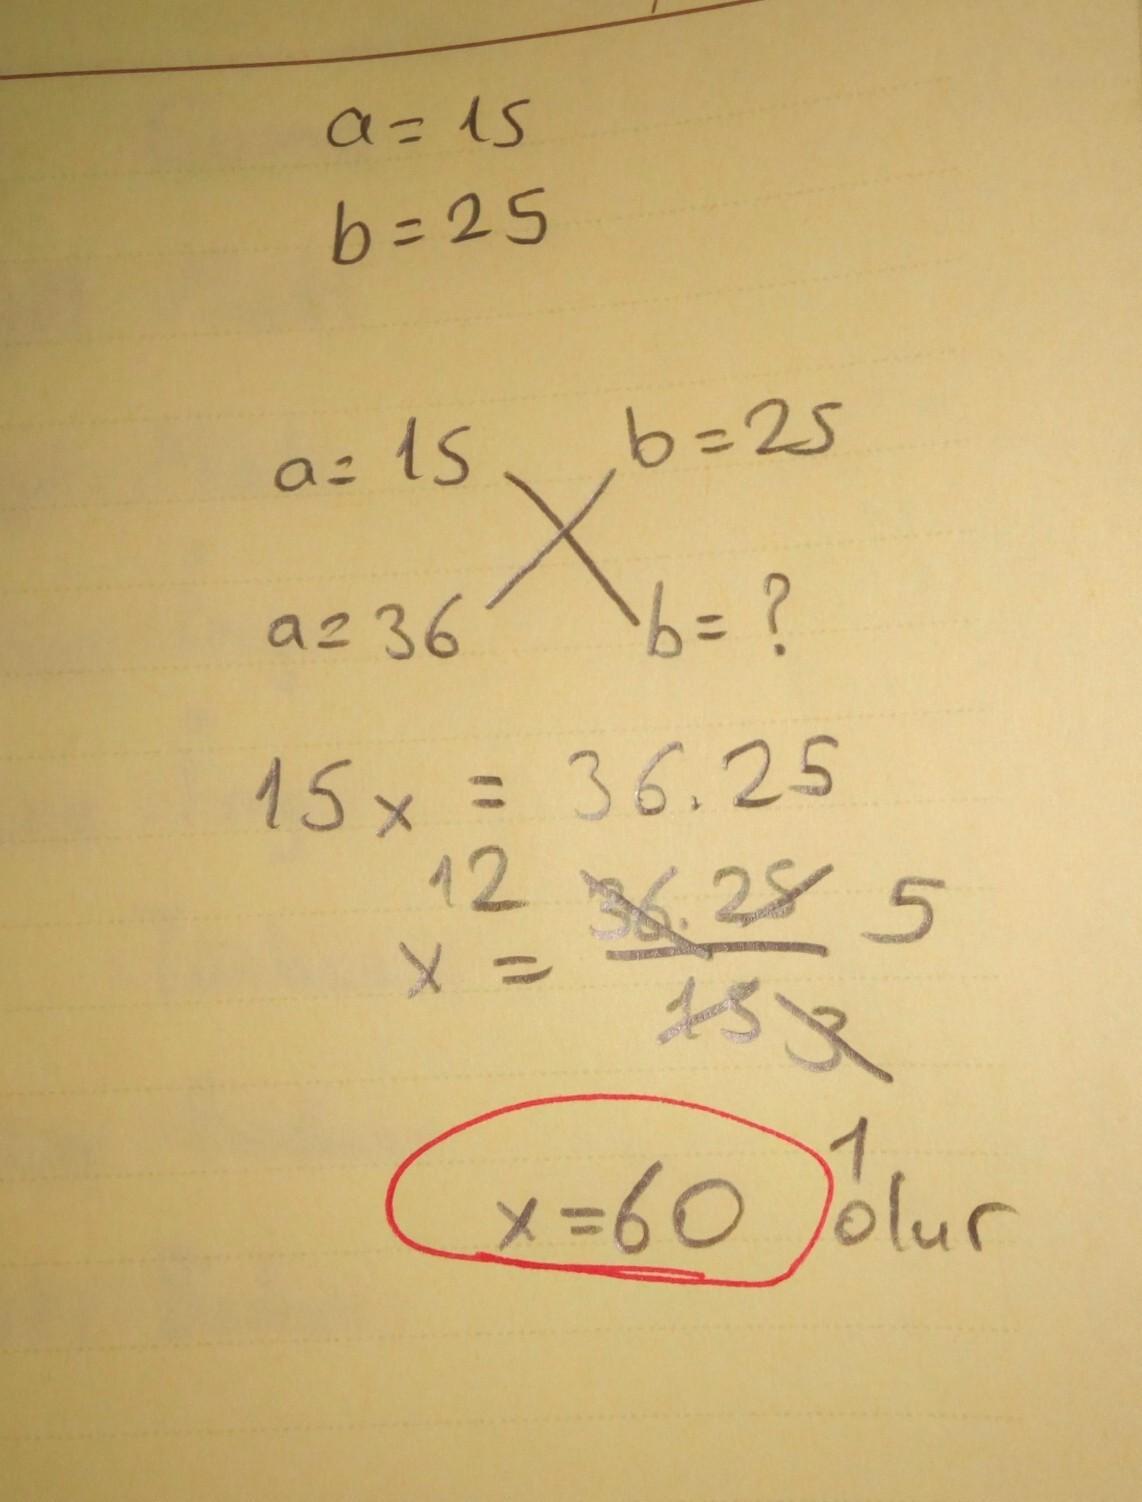 a = 15
b = 25
a = 15 b = 25
a = 36 b = ?
15x = 36.25
12 36.25 5
x =
15 3
1
x = 60 olur